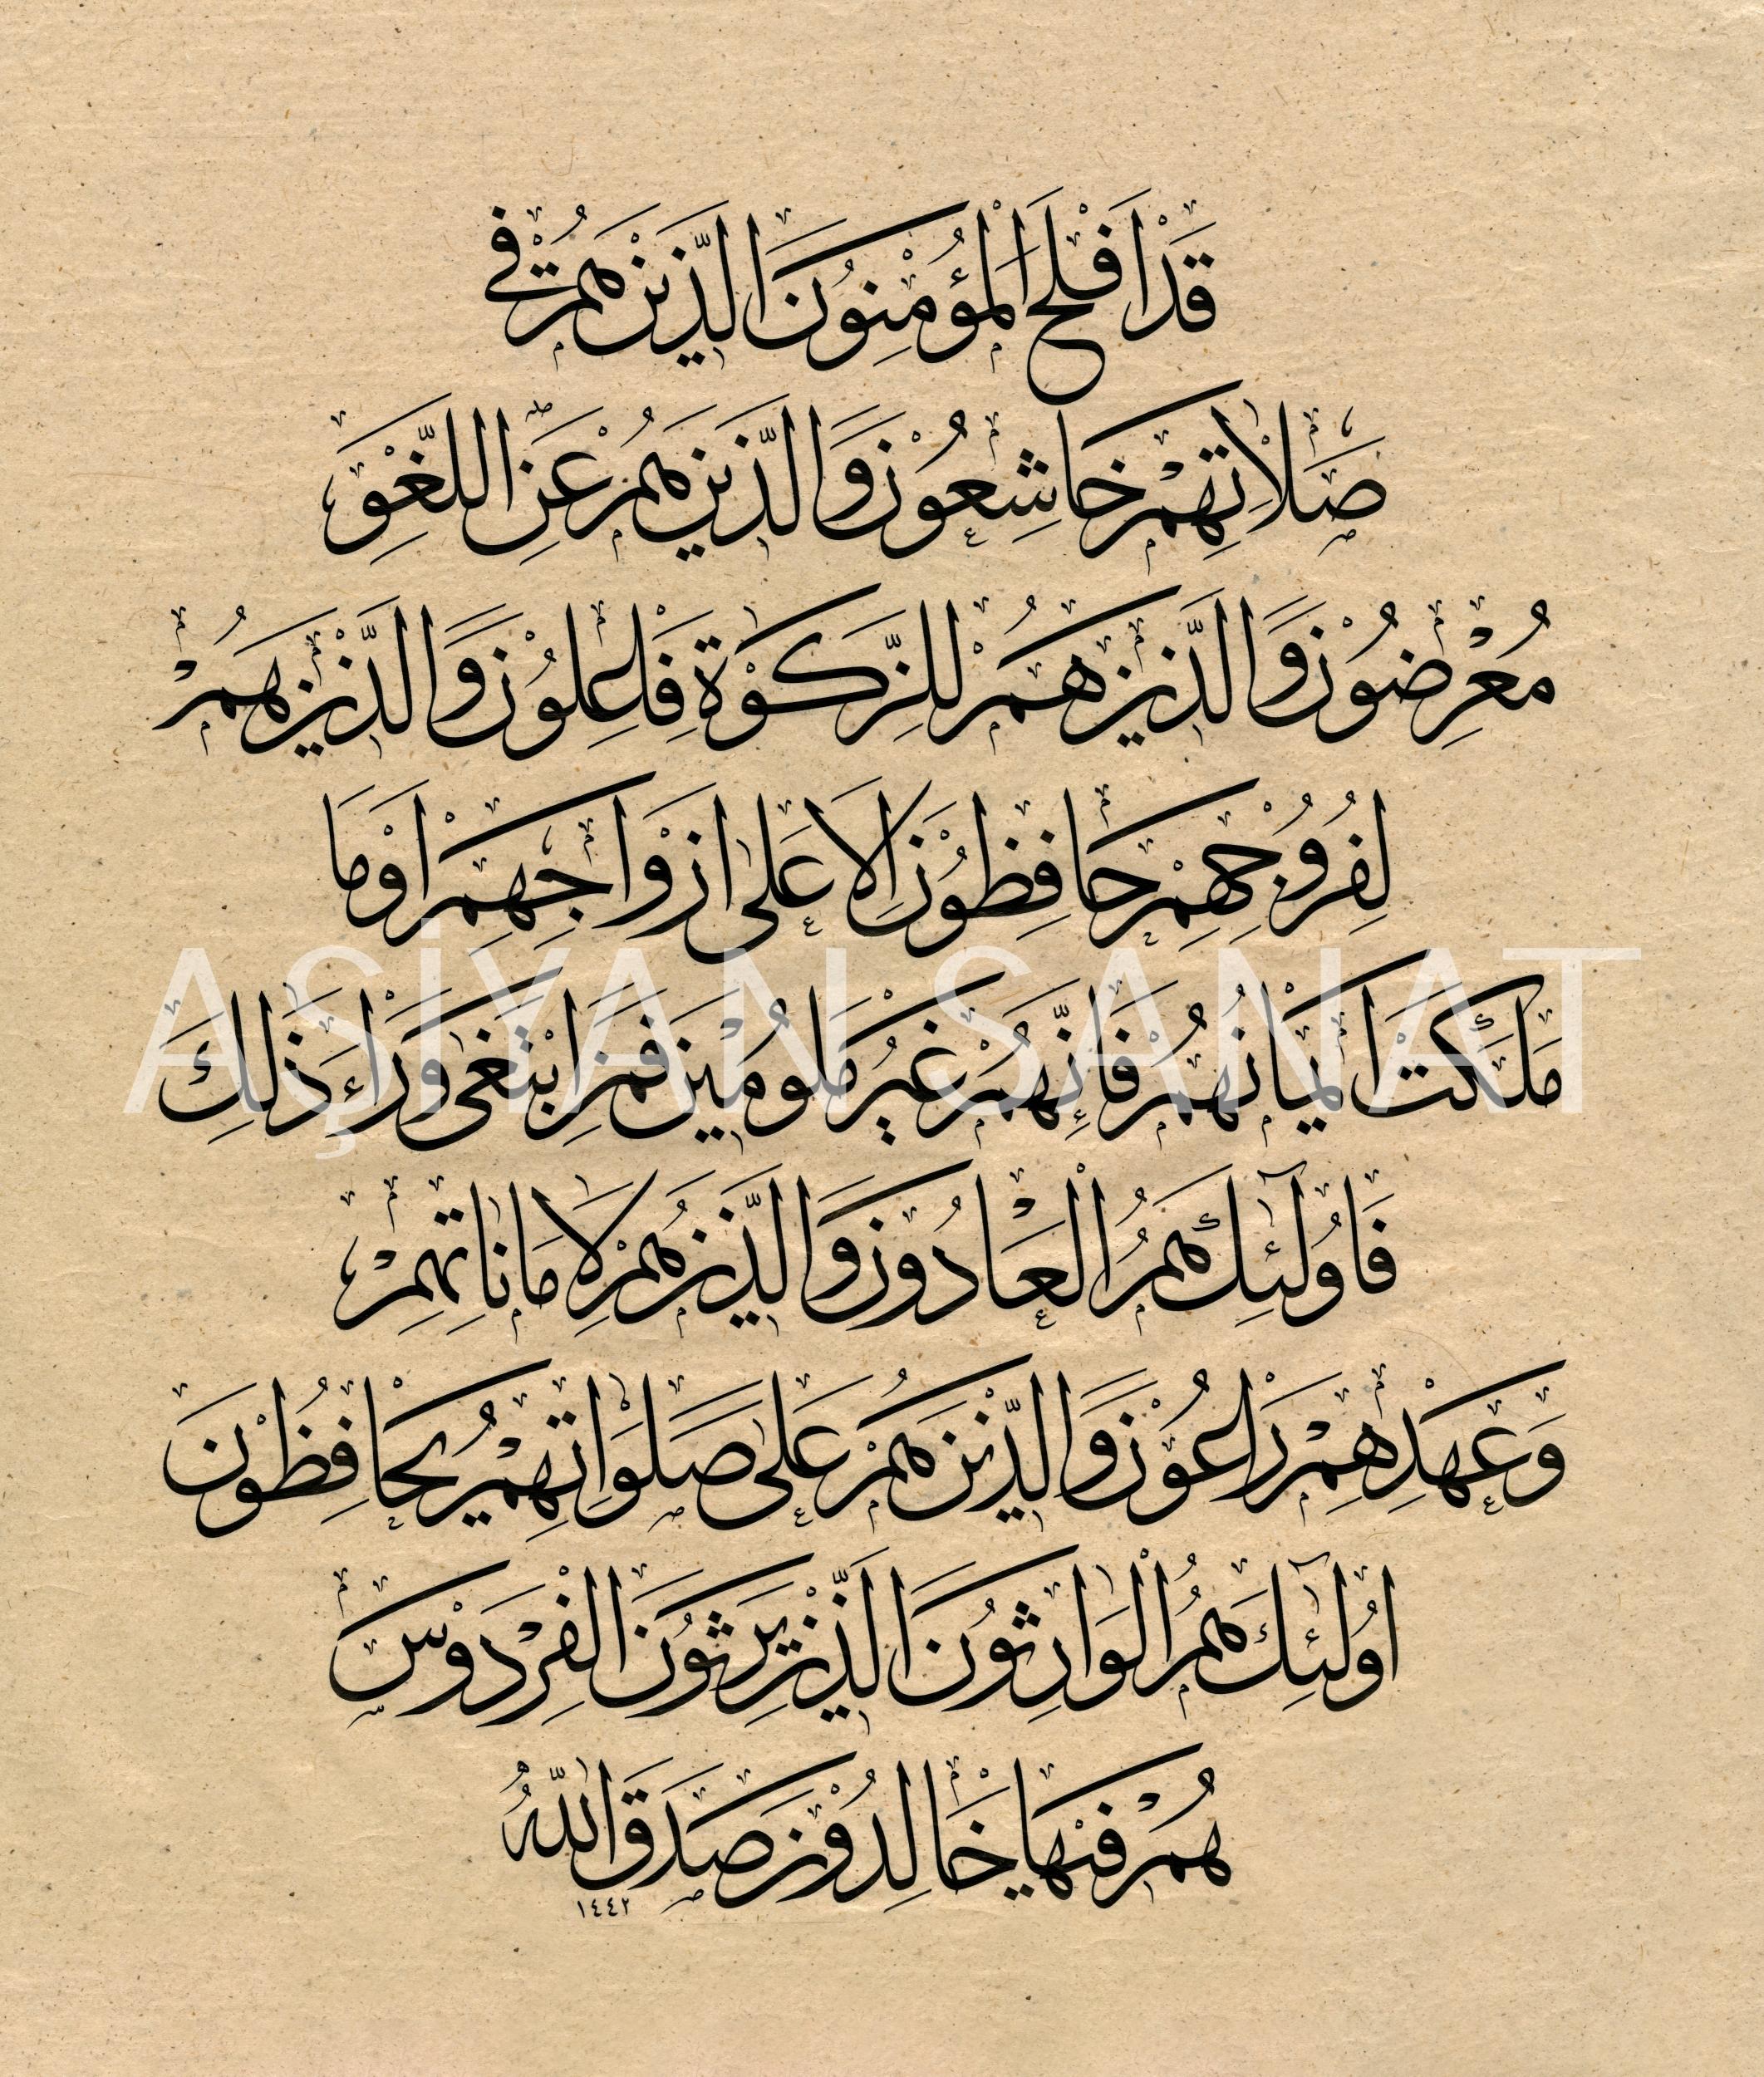 قَدْ اَفْلَحَ الْمُؤْمِنُونَ الَّذِينَ هُمْ فِي
صَلَاتِهِمْ خَاشِعُونَ وَالَّذِينَ هُمْ عَنِ اللَّغْوِ
مُعْرِضُونَ وَالَّذِينَ هُمْ لِلزَّكٰوةِ فَاعِلُونَ وَالَّذِينَ هُمْ
لِفُرُوجِهِمْ حَافِظُونَ اِلَّا عَلٰى اَزْوَاجِهِمْ اَوْ مَا
مَلَكَتْ اَيْمَانُهُمْ فَاِنَّهُمْ غَيْرُ مَلُومِينَ فَمَنِ ابْتَغٰى وَرَاءَ ذٰلِكَ
فَاُولٰٓئِكَ هُمُ الْعَادُونَ وَالَّذِينَ هُمْ لِاَمَانَاتِهِمْ
وَعَهْدِهِمْ رَاعُونَ وَالَّذِينَ هُمْ عَلٰى صَلَوَاتِهِمْ يُحَافِظُونَ
اُولٰٓئِكَ هُمُ الْوَارِثُونَ الَّذِينَ يَرِثُونَ الْفِرْدَوْسَ
هُمْ فِيهَا خَالِدُونَ صَدَقَ اللّٰهُ
١٤٤٢
AŞİYAN SANAT